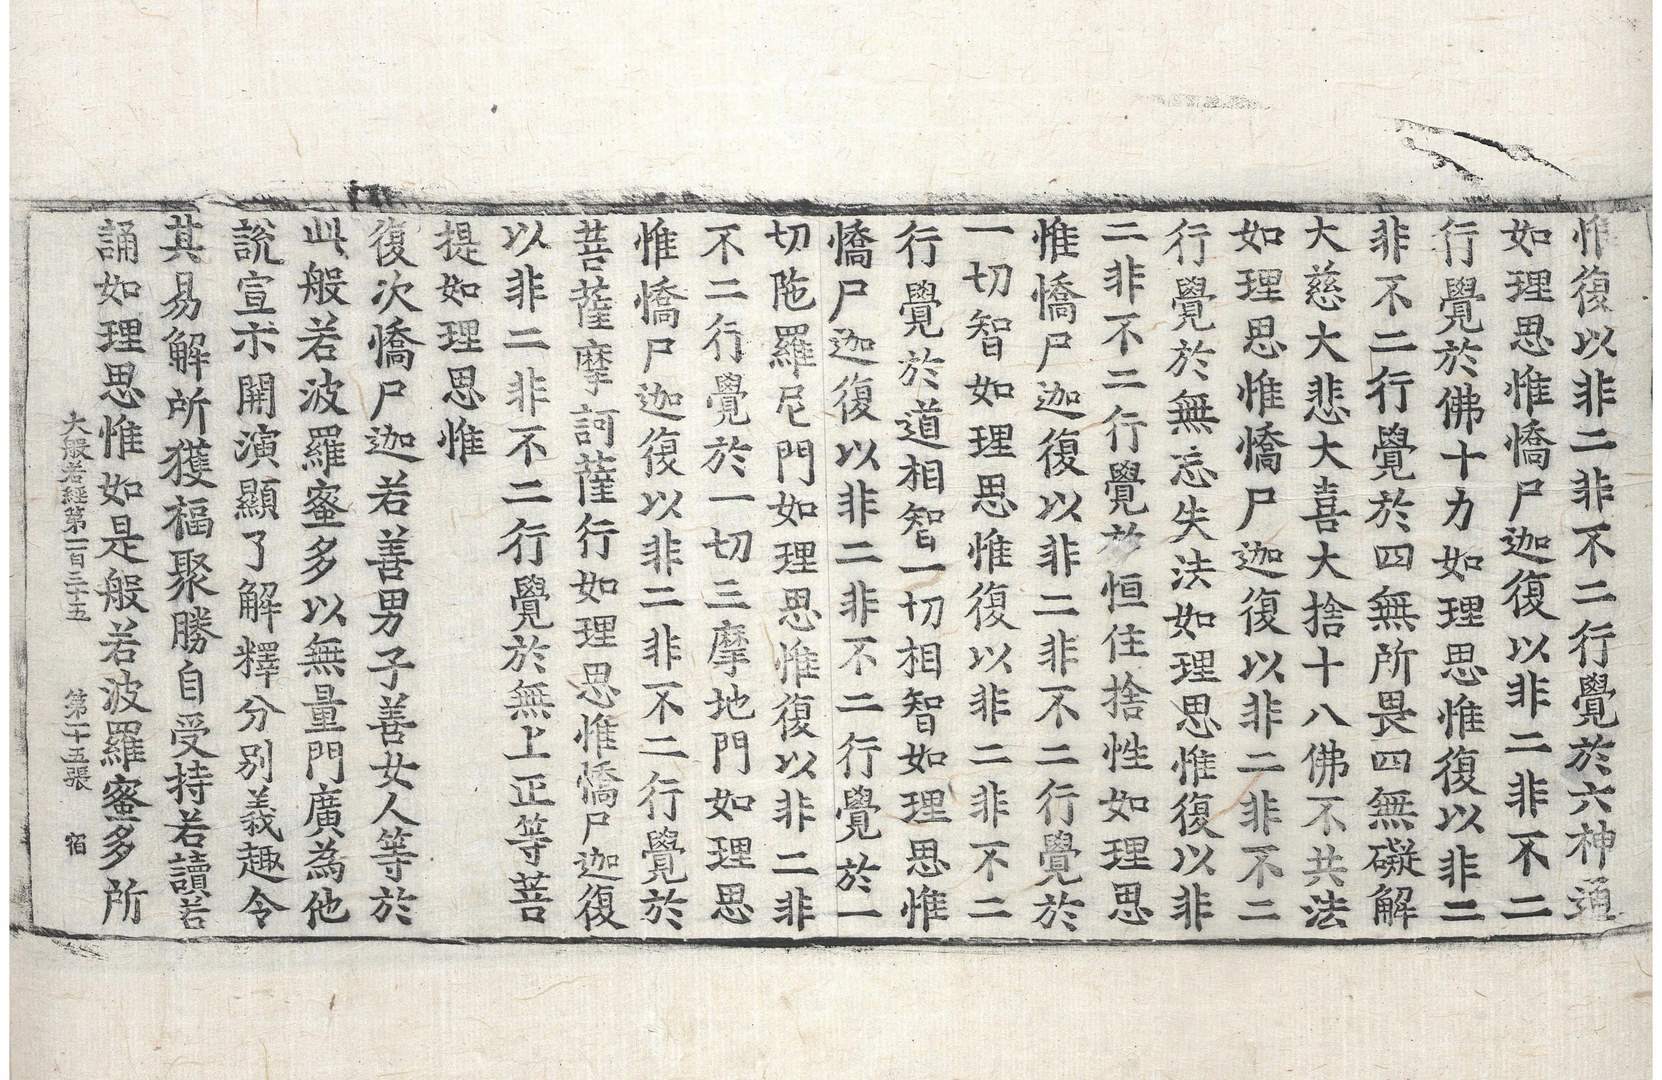 惟復以非二非不二行覺於六神通
如理思惟憍尸迦復以非二非不二
行覺於佛十力如理思惟復以非二
非不二行覺於四無所畏四無礙解
大慈大悲大喜大捨十八佛不共法
如理思惟憍尸迦復以非二非不二
行覺於無忘失法如理思惟復以非
二非不二行覺於恒住捨性如理思
惟憍尸迦復以非二非不二行覺於
一切智如理思惟復以非二非不二
行覺於道相智一切相智如理思惟
憍尸迦復以非二非不二行覺於一
切陁羅尼門如理思惟復以非二非
不二行覺於一切三摩地門如理思
惟憍尸迦復以非二非不二行覺於
菩薩摩訶薩行如理思惟憍尸迦復
以非二非不二行覺於無上正等菩
提如理思惟
復次憍尸迦若善男子善女人等於
此般若波羅蜜多以無量門廣為他
說宣示開演顯了解釋分別義趣令
其易解所獲福聚勝自受持若讀若
誦如理思惟如是般若波羅蜜多所
大般若經第一百三十五 第二十五張 宿